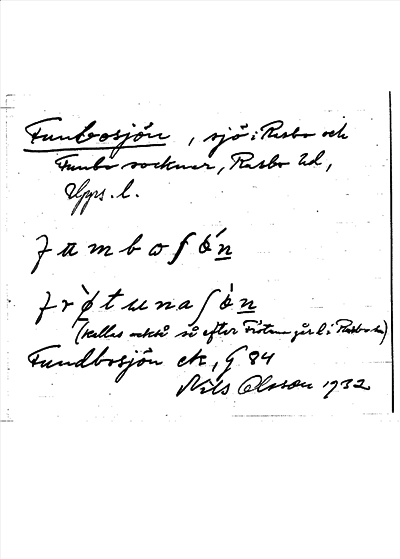 Funbosjön, sjö i Rasbo och
Funbo socknar, Rasbo hd,
Upps. l.
fambosǿn
frǿtunasǿn
(kallas också så efter Frötuna gård i Rasbo sn)
Fundbosjön ek, G 84
Nils Olsson 1932